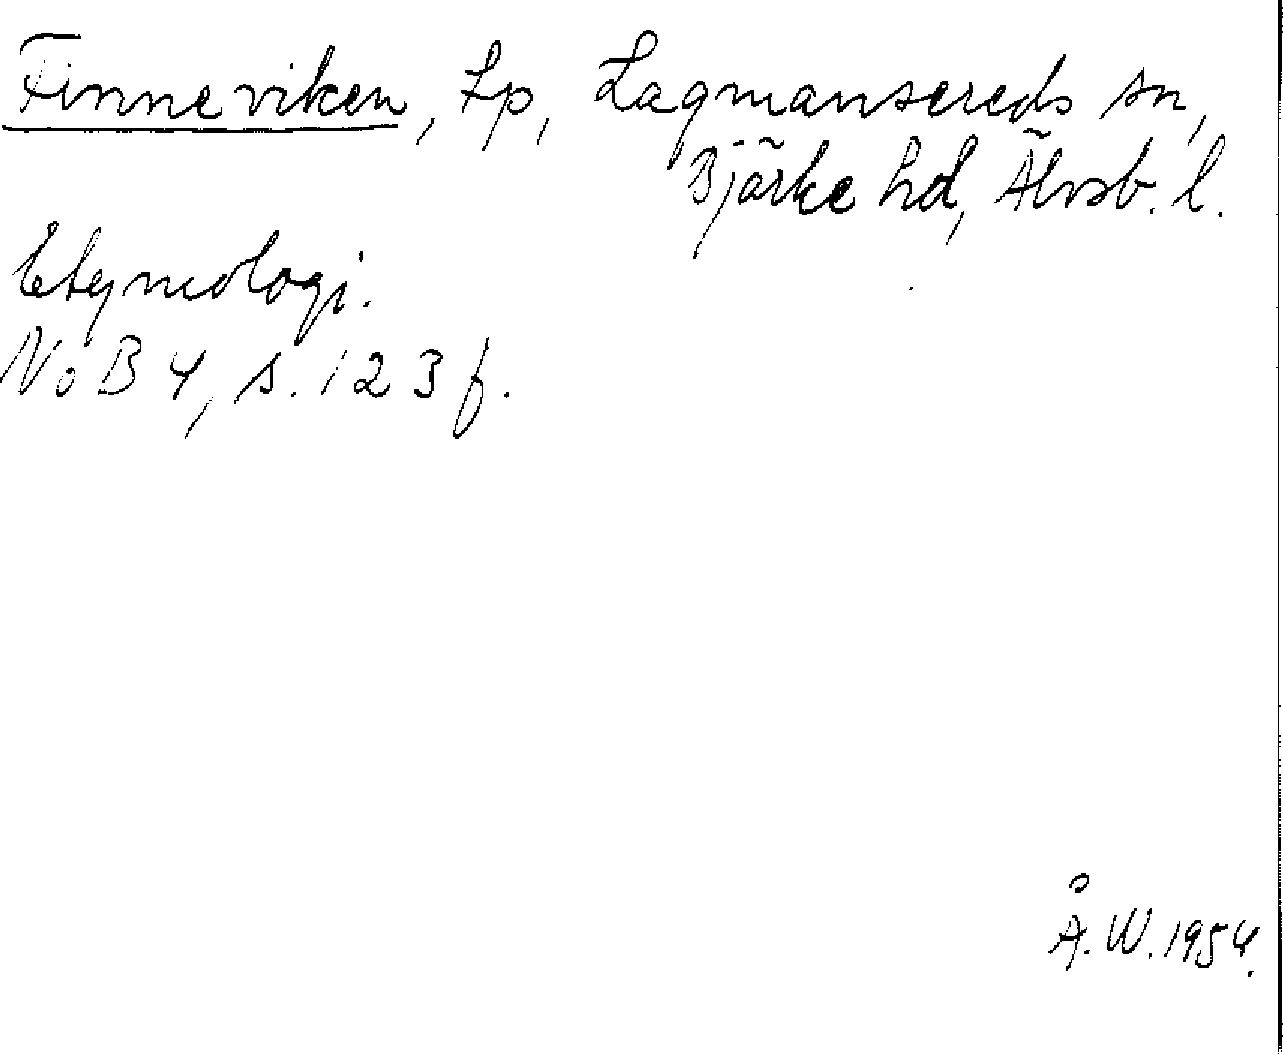 Finneviken, Lp, Lagmansereds sn,
Bjärke hd, Älvsb. l.
Etymologi.
NoB 4, s. 123 f.
Å. W. 1954.